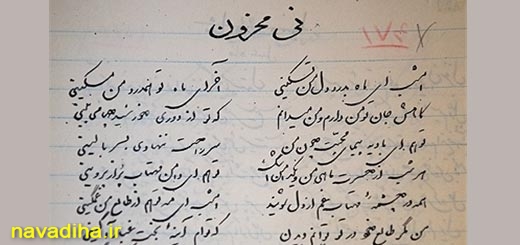 نی محزون
امشب ای ماه بدرد دل من تسکینی آخر ای ماه تو همدرد من مسکینی
کاهش جان تو من دارم و من میدانم که تو از دوری خورشید چها می بینی
تو هم ای بادیه پیمای محبت چون من سر راحت ننهادی بسر بالینی
هر شب از حسرت ماهی من و یک دامن اشک تو هم ای دامن مهتاب پر از پروینی
همه در چشمه مهتاب غم از دل شویند امشب ای مه تو هم از طالع من غمگینی
من مگر طالع خود در تو توانم دیدن که توام آینه بخت
navadiha.ir